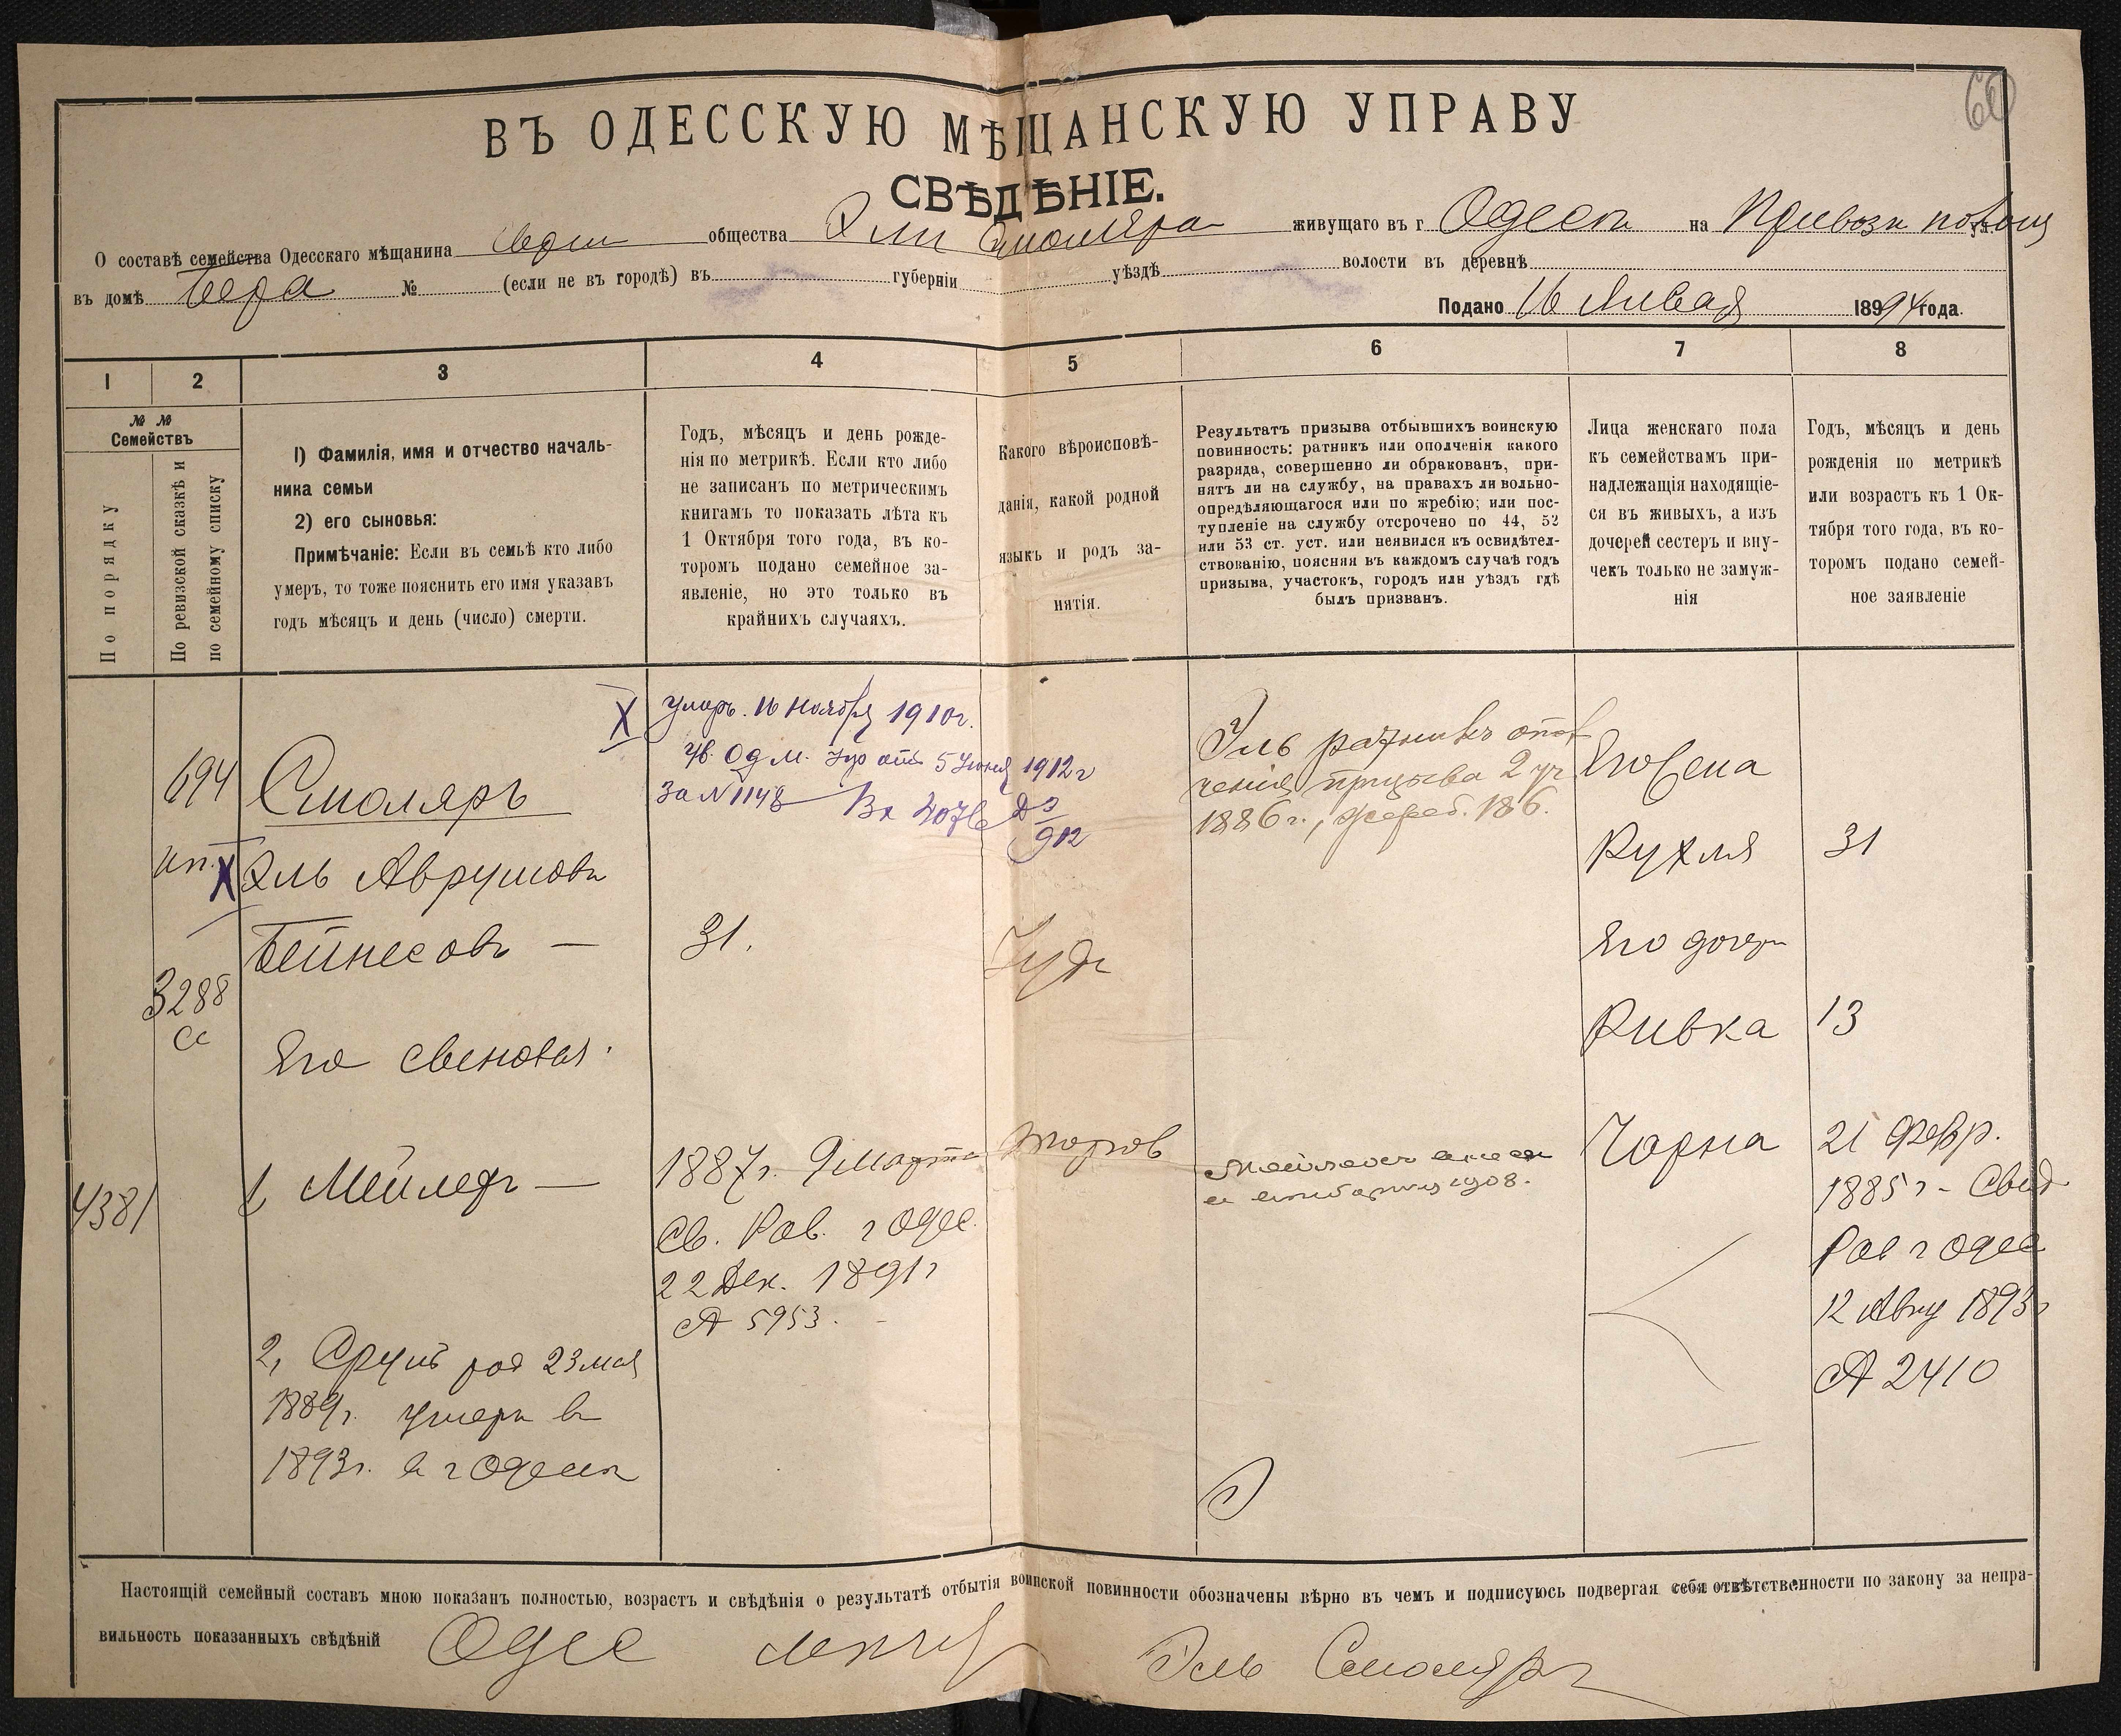 60
ВЪ ОДЕССКУЮ МѢЩАНСКУЮ УПРАВУ
СВѢДѢНІЕ.
О составѣ семейства Одесскаго мѣщанина Евреи общества Эли Смоляра живущаго въ г Одесса на Привозн площ
въ домѣ Бера № (если не въ городѣ) въ губерніи уѣздѣ волости въ деревнѣ
Подано 16 Января 1894 года.
1 2 3 4 5 6 7 8
№ №
Семействъ
По порядку
По ревизской сказкѣ и
по семейному списку
1) Фамилія, имя и отчество началь-
ника семьи
2) его сыновья:
Примѣчаніе: Если въ семьѣ кто либо
умеръ, то тоже пояснить его имя указавъ
годъ мѣсяцъ и день (число) смерти.
Годъ, мѣсяцъ и день рожде-
нія по метрикѣ. Если кто либо
не записанъ по метрическимъ
книгамъ то показать лѣта къ
1 Октября того года, въ ко-
торомъ подано семейное за-
явленіе, но это только въ
крайнихъ случаяхъ.
Какого вѣроисповѣ-
данія, какой родной
языкъ и родъ за-
нятія.
Результатъ призыва отбывшихъ воинскую
повинность: ратникъ или ополченія какого
разряда, совершенно ли обракованъ, при-
нятъ ли на службу, на правахъ ли вольно-
опредѣляющагося или по жребію; или пос-
тупленіе на службу отсрочено по 44, 52
или 53 ст. уст. или неявился къ освидѣтел-
ствованію, поясняя въ каждомъ случаѣ годъ
призыва, участокъ, городъ или уѣздъ гдѣ
былъ призванъ.
Лица женскаго пола
къ семействамъ при-
надлежащія находящіе-
ся въ живыхъ, а изъ
дочерей сестеръ и вну-
чекъ только не замуж-
нія
Годъ, мѣсяцъ и день
рожденія по метрикѣ
или возрастъ къ 1 Ок-
тября того года, въ ко-
торомъ подано семей-
ное заявленіе
694
3288
4381
Смоляръ
X Эль Аврумовъ
Бейнесовъ —
Его сыновья:
1, Мейлехъ —
2, Сруль род 23 мая
1889г. умеръ въ
1893г. в г Одессѣ
X умеръ. 16 Ноября 1910г.
ув. Од м. Упр отъ 5 Іюня 1912 г
За № 1148 Вх 2076
912
31.
1887г. 9 Марта
Св. Рав. г Одес.
22 Дек. 1891г
№ 5953.
Іуд
Торгов
Эль ратникъ опол
ченія призыва 2 уч
1886г., жереб. 186.
1908.
Его жена
Рухля 31
Его дочери
Ривка 13
Чарна
21 Февр.
1885г - Свид
Рав г Одес
12 Авгу 1893г
№ 2410
Настоящій семейный составъ мною показанъ полностью, возрастъ и свѣдѣнія о результатѣ отбытія воинской повинности обозначены вѣрно въ чемъ и подписуюсь подвергая себя отвѣтственности по закону за непра-
вильность показанныхъ свѣдѣній Одес мѣщ Эль Смоляръ